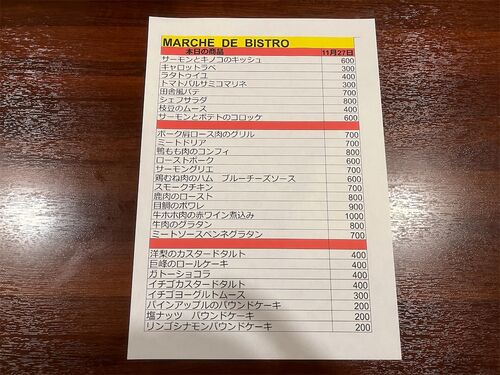 MARCHE DE BISTRO
本日の商品 11月27日
サーモンとキノコのキッシュ 600
キャロットラペ 300
ラタトゥイユ 400
トマトバルサミコマリネ 300
田舎風パテ 700
シェフサラダ 800
枝豆のムース 400
サーモンとポテトのコロッケ 600
ポーク肩ロース肉のグリル 700
ミートドリア 700
鴨もも肉のコンフィ 800
ローストポーク 600
サーモングリエ 700
鶏むね肉のハム ブルーチーズソース 600
スモークチキン 700
鹿肉のロースト 800
目鯛のポワレ 900
牛ホホ肉の赤ワイン煮込み 1000
牛肉のグラタン 800
ミートソースペンネグラタン 700
洋梨のカスタードタルト 400
巨峰のロールケーキ 400
ガトーショコラ 400
イチゴカスタードタルト 400
イチゴヨーグルトムース 300
パインアップルのパウンドケーキ 200
塩ナッツ パウンドケーキ 200
リンゴシナモンパウンドケーキ 200